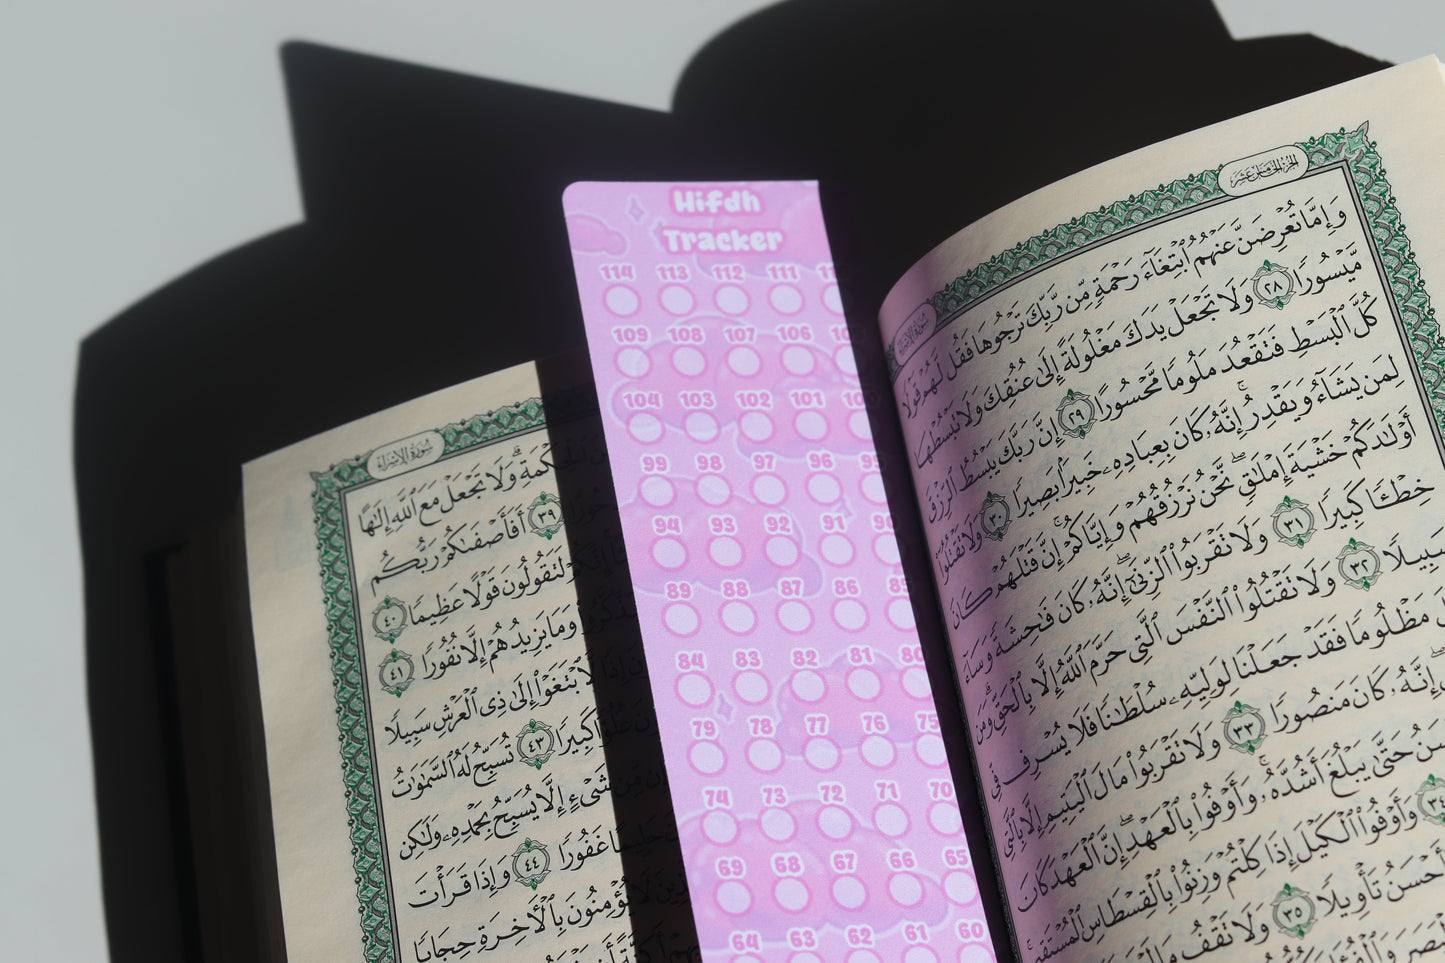 Hifdh
Tracker
114 113 112 111
109 108 107 106 105
104 103 102 101 100
99 98 97 96 95
94 93 92 91 90
89 88 87 86 85
84 83 82 81 80
79 78 77 76 75
74 73 72 71 70
69 68 67 66 65
64 63 62 61 60
الجزء الخامس عشر
سورة الإسراء
وَإِمَّا تُعْرِضَنَّ عَنْهُمُ ٱبْتِغَآءَ رَحْمَةٍ مِّن رَّبِّكَ تَرْجُوهَا فَقُل لَّهُمْ قَوْلًا
مَّيْسُورًا ٢٨ وَلَا تَجْعَلْ يَدَكَ مَغْلُولَةً إِلَىٰ عُنُقِكَ وَلَا تَبْسُطْهَا
كُلَّ ٱلْبَسْطِ فَتَقْعُدَ مَلُومًا مَّحْسُورًا ٢٩ إِنَّ رَبَّكَ يَبْسُطُ ٱلرِّزْقَ
لِمَن يَشَآءُ وَيَقْدِرُ ۚ إِنَّهُۥ كَانَ بِعِبَادِهِۦ خَبِيرًۢا بَصِيرًا ٣٠ وَلَا تَقْتُلُوٓا۟
أَوْلَٰدَكُمْ خَشْيَةَ إِمْلَٰقٍ ۖ نَّحْنُ نَرْزُقُهُمْ وَإِيَّاكُمْ ۚ إِنَّ قَتْلَهُمْ كَانَ
خِطْـًٔا كَبِيرًا ٣١ وَلَا تَقْرَبُوا۟ ٱلزِّنَىٰٓ ۖ إِنَّهُۥ كَانَ فَٰحِشَةً وَسَآءَ
سَبِيلًا ٣٢ وَلَا تَقْتُلُوا۟ ٱلنَّفْسَ ٱلَّتِى حَرَّمَ ٱللَّهُ إِلَّا بِٱلْحَقِّ ۗ وَمَن
مَظْلُومًا فَقَدْ جَعَلْنَا لِوَلِيِّهِۦ سُلْطَٰنًا فَلَا يُسْرِف فِّى
إِنَّهُۥ كَانَ مَنصُورًا ٣٣ وَلَا تَقْرَبُوا۟ مَالَ ٱلْيَتِيمِ إِلَّا بِٱلَّتِى
حَتَّىٰ يَبْلُغَ أَشُدَّهُۥ ۚ وَأَوْفُوا۟ بِٱلْعَهْدِ ۖ إِنَّ ٱلْعَهْدَ كَانَ
٣٤ وَأَوْفُوا۟ ٱلْكَيْلَ إِذَا كِلْتُمْ وَزِنُوا۟ بِٱلْقِسْطَاسِ ٱلْمُسْتَقِيمِ ۚ
أَحْسَنُ تَأْوِيلًا ٣٥ وَلَا تَقْفُ مَا لَيْسَ
سورة الإسراء
ٱلْحِكْمَةِ ۗ وَلَا تَجْعَلْ مَعَ ٱللَّهِ إِلَٰهًا
٣٩ أَفَأَصْفَىٰكُمْ رَبُّكُم
إِنَّكُمْ لَتَقُولُونَ قَوْلًا عَظِيمًا ٤٠
وَمَا يَزِيدُهُمْ إِلَّا نُفُورًا ٤١
لَّٱبْتَغَوْا۟ إِلَىٰ ذِى ٱلْعَرْشِ سَبِيلًا
عُلُوًّا كَبِيرًا ٤٣ تُسَبِّحُ لَهُ ٱلسَّمَٰوَٰتُ
مِّن شَىْءٍ إِلَّا يُسَبِّحُ بِحَمْدِهِۦ وَلَٰكِن
حَلِيمًا غَفُورًا ٤٤ وَإِذَا قَرَأْتَ
لَا يُؤْمِنُونَ بِٱلْـَٔاخِرَةِ حِجَابًا